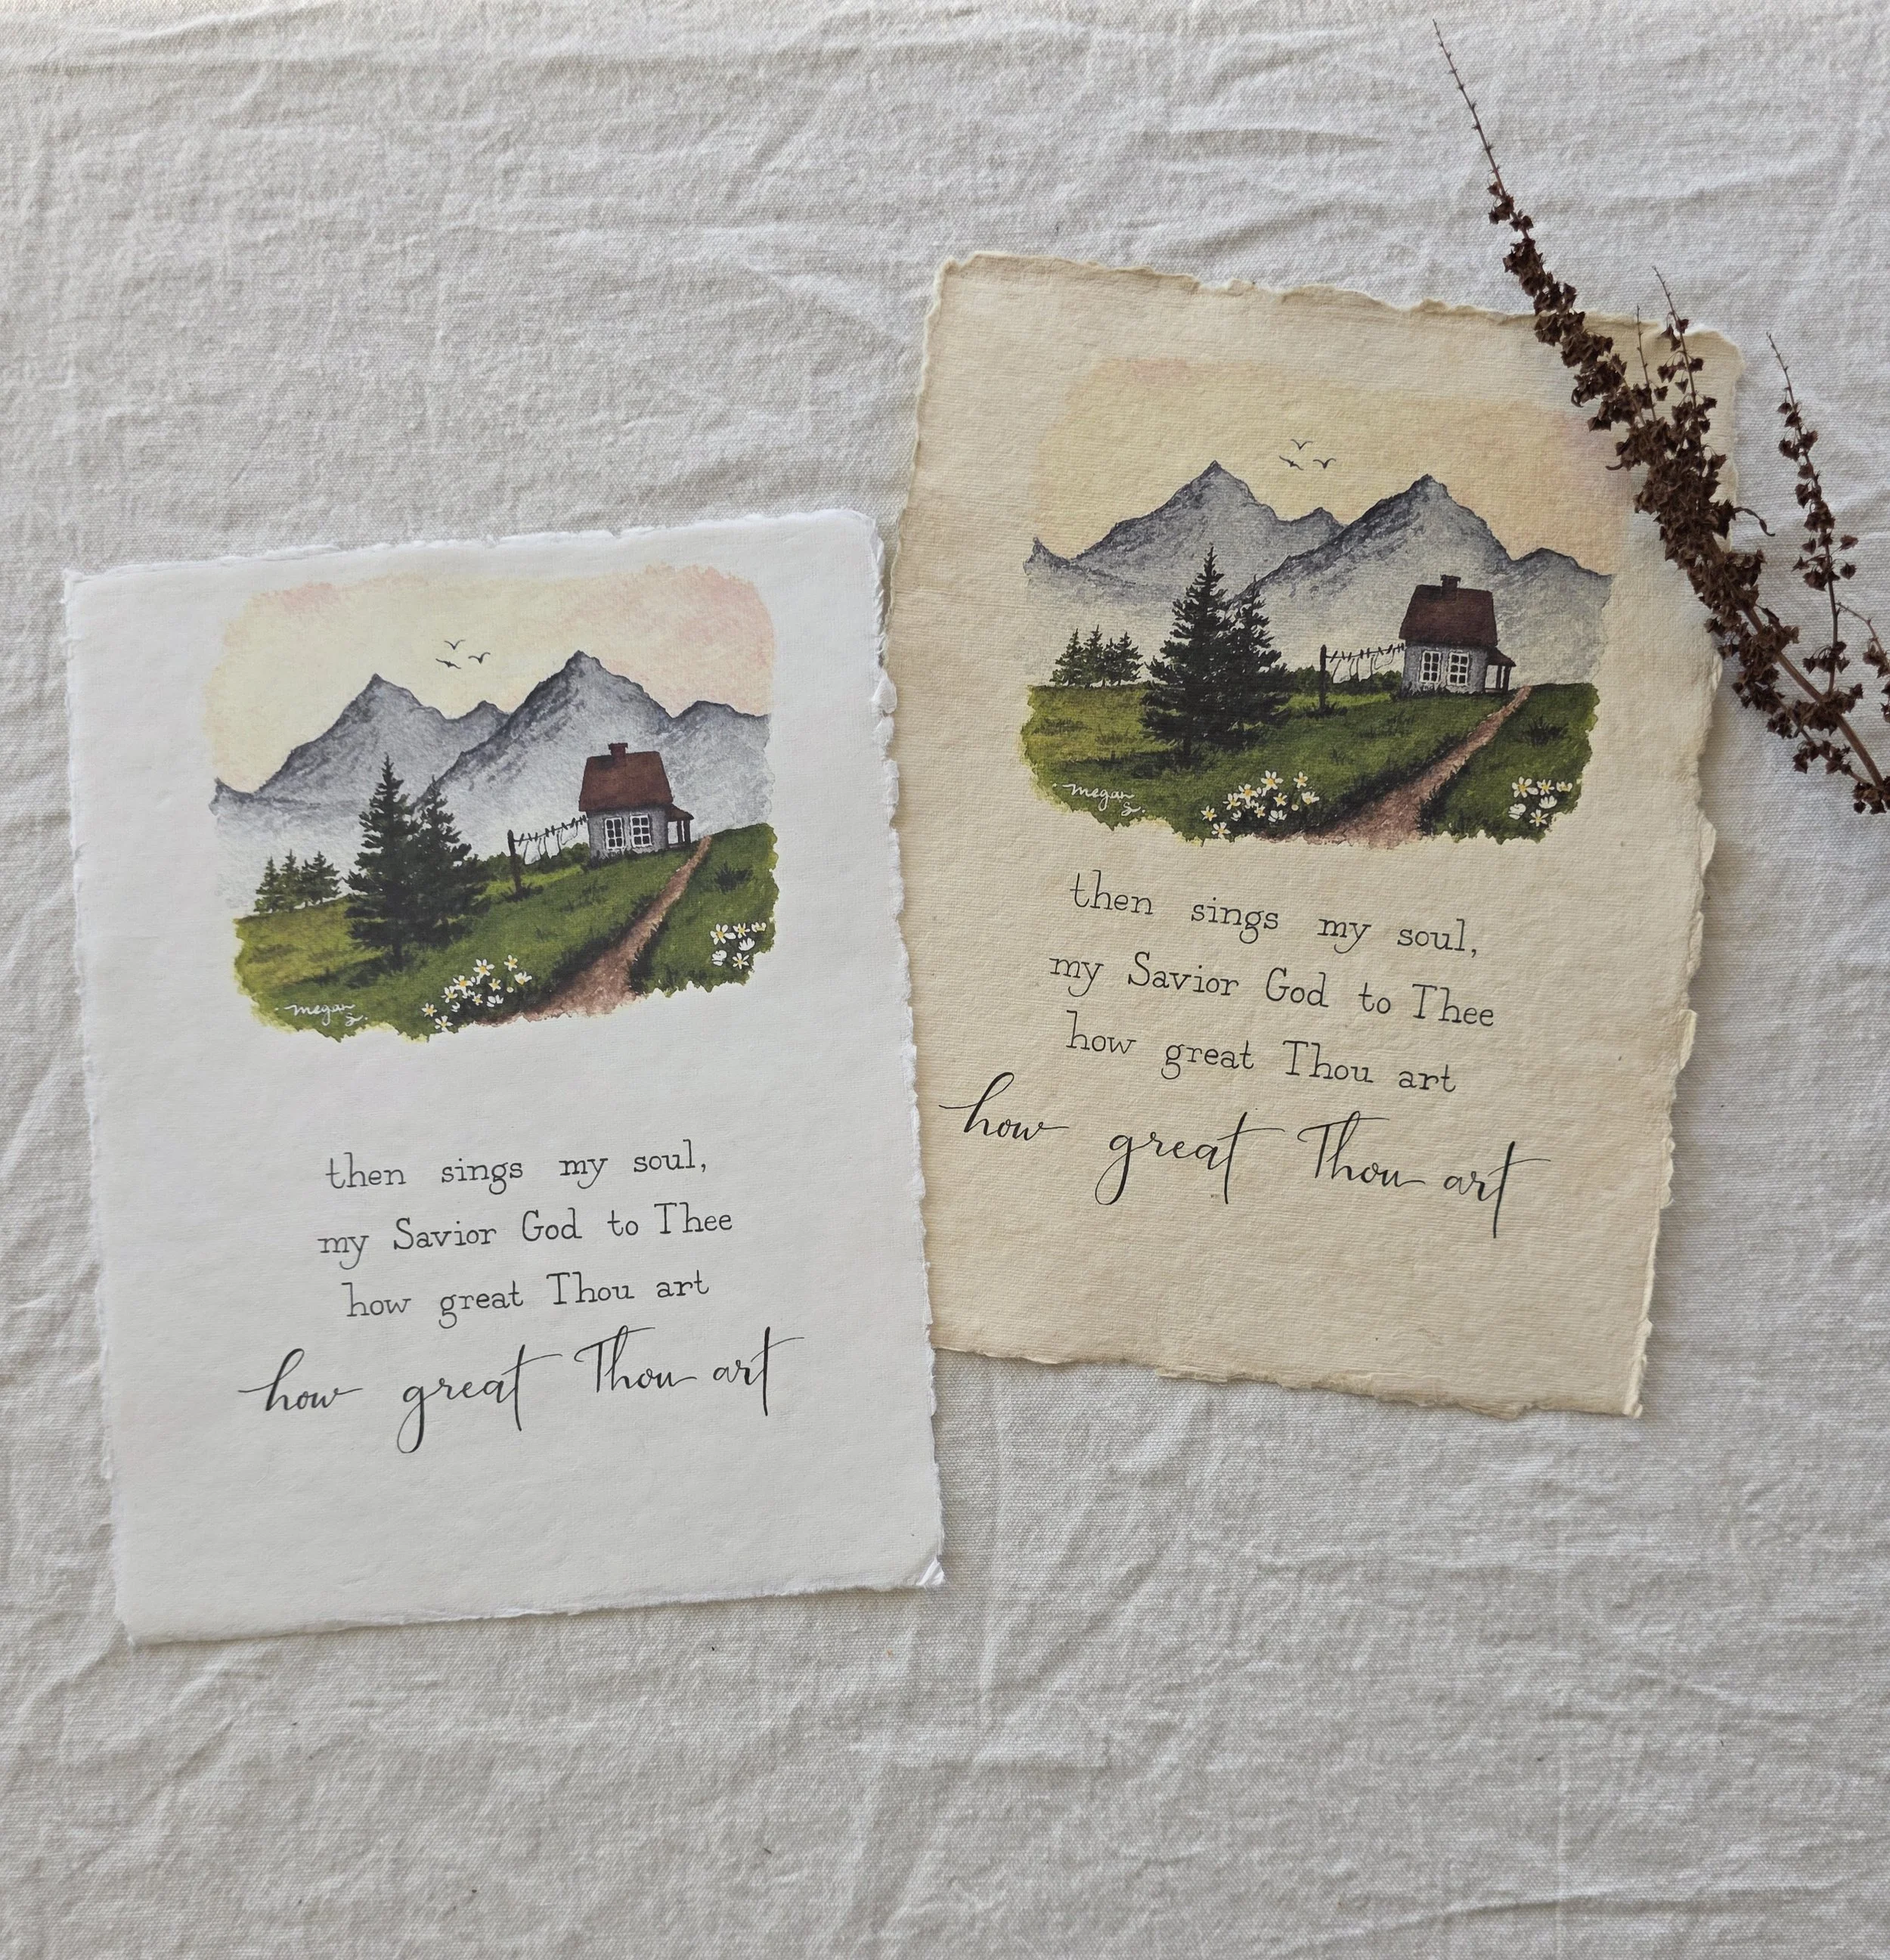 megan
S.
then sings my soul,
my Savior God to Thee
how great Thou art
how great Thou art
megan
S.
then sings my soul,
my Savior God to Thee
how great Thou art
how great Thou art